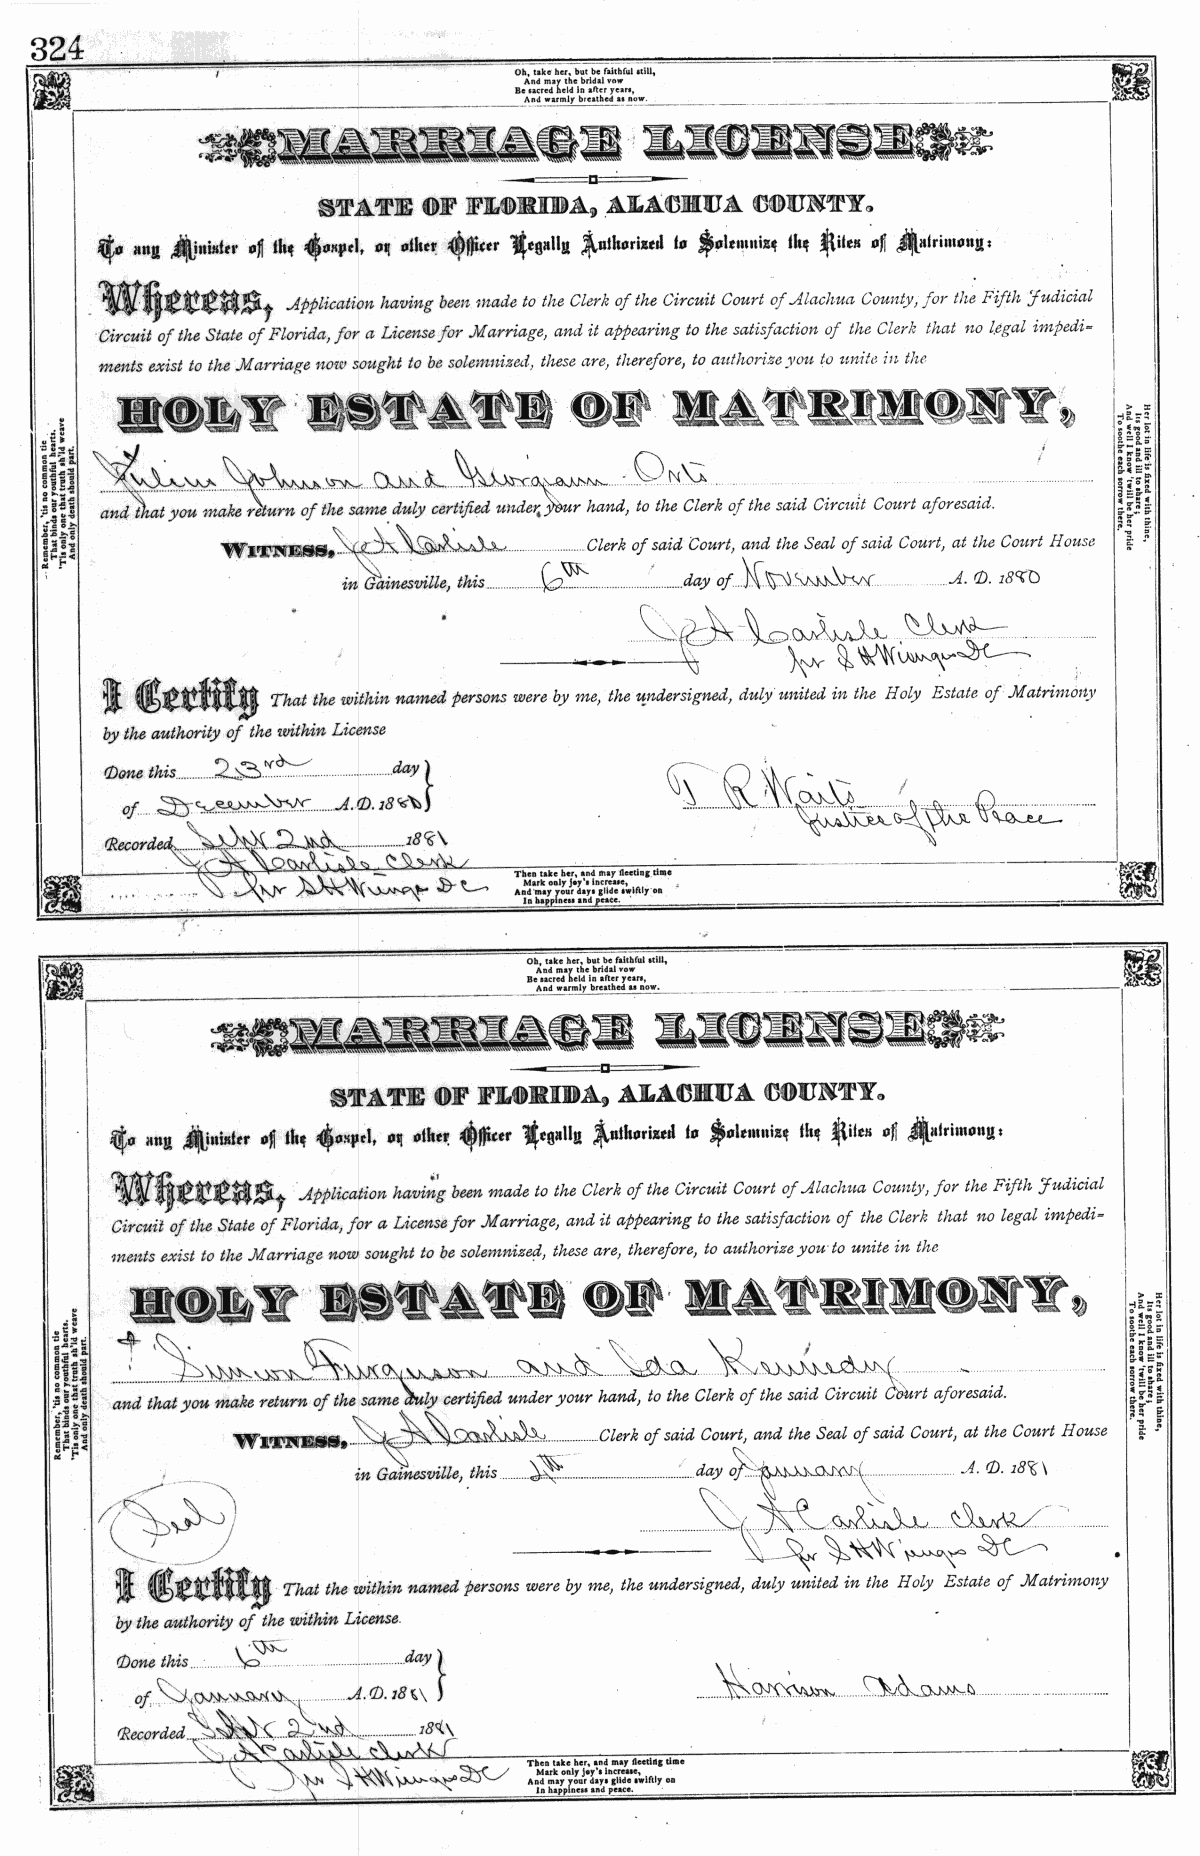 324
Oh, take her, but be faithful still,
And may the bridal vow
Be sacred held in after years,
And warmly breathed as now.
MARRIAGE LICENSE
STATE OF FLORIDA, ALACHUA COUNTY.
To any Minister of the Gospel, or other Officer Legally Authorized to Solemnize the Rites of Matrimony:
Whereas, Application having been made to the Clerk of the Circuit Court of Alachua County, for the Fifth Judicial
Circuit of the State of Florida, for a License for Marriage, and it appearing to the satisfaction of the Clerk that no legal impedi=
ments exist to the Marriage now sought to be solemnized, these are, therefore, to authorize you to unite in the
HOLY ESTATE OF MATRIMONY,
Julius Johnson and Georgiann
and that you make return of the same duly certified under your hand, to the Clerk of the said Circuit Court aforesaid.
WITNESS, J A Carlisle Clerk of said Court, and the Seal of said Court, at the Court House
in Gainesville, this 6th day of November A. D. 1880
J A Carlisle Clerk
per S H Wienges DC
I Certify That the within named persons were by me, the undersigned, duly united in the Holy Estate of Matrimony
by the authority of the within License
Done this 23rd day
of December A.D. 1880
T R Waits
Justice of the Peace
Recorded Sept 2nd 1881
J A Carlisle Clerk
per S H Wienges DC
Then take her, and may fleeting time
Mark only joy's increase,
And may your days glide swiftly on
In happiness and peace.
Remember, 'tis no common tie
That binds our youthful hearts,
'Tis only one that truth sh'ld weave
And only death should part.
Her lot in life is fixed with thine,
Its good and ill to share;
And well I know 'twill be her pride
To soothe each sorrow there.
Oh, take her, but be faithful still,
And may the bridal vow
Be sacred held in after years,
And warmly breathed as now.
MARRIAGE LICENSE
STATE OF FLORIDA, ALACHUA COUNTY.
To any Minister of the Gospel, or other Officer Legally Authorized to Solemnize the Rites of Matrimony:
Whereas, Application having been made to the Clerk of the Circuit Court of Alachua County, for the Fifth Judicial
Circuit of the State of Florida, for a License for Marriage, and it appearing to the satisfaction of the Clerk that no legal impedi=
ments exist to the Marriage now sought to be solemnized, these are, therefore, to authorize you to unite in the
HOLY ESTATE OF MATRIMONY,
Simon Furguson and Ida Kennedy
and that you make return of the same duly certified under your hand, to the Clerk of the said Circuit Court aforesaid.
WITNESS, J A Carlisle Clerk of said Court, and the Seal of said Court, at the Court House
in Gainesville, this 4th day of January A. D. 1881
Seal
J A Carlisle Clerk
per S H Wienges DC
I Certify That the within named persons were by me, the undersigned, duly united in the Holy Estate of Matrimony
by the authority of the within License.
Done this 6th day
of January A.D. 1881
Harrison Adams
Recorded Sept 2nd 1881
J A Carlisle Clerk
per S H Wienges DC
Then take her, and may fleeting time
Mark only joy's increase,
And may your days glide swiftly on
In happiness and peace.
Remember, 'tis no common tie
That binds our youthful hearts,
'Tis only one that truth sh'ld weave
And only death should part.
Her lot in life is fixed with thine,
Its good and ill to share;
And well I know 'twill be her pride
To soothe each sorrow there.